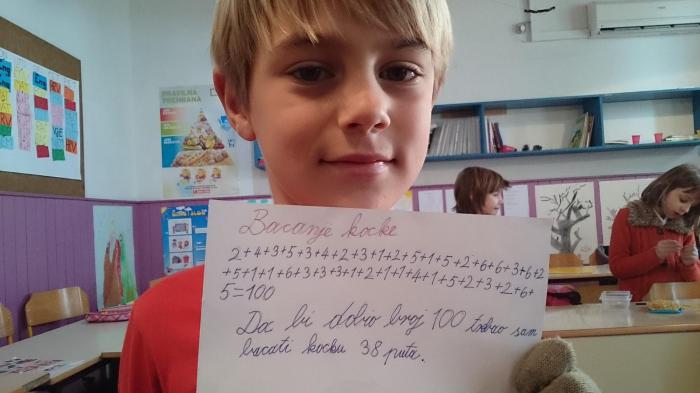 PRAVILNA
PREHRANA
Bacanje kocke
2+4+3+5+3+4+2+3+1+2+5+1+5+2+6+6+3+6+2
+5+1+1+6+3+3+3+1+2+1+1+4+1+5+2+3+2+6+
5=100
Da bi dobio broj 100 trebao sam
bacati kocku 38 puta.